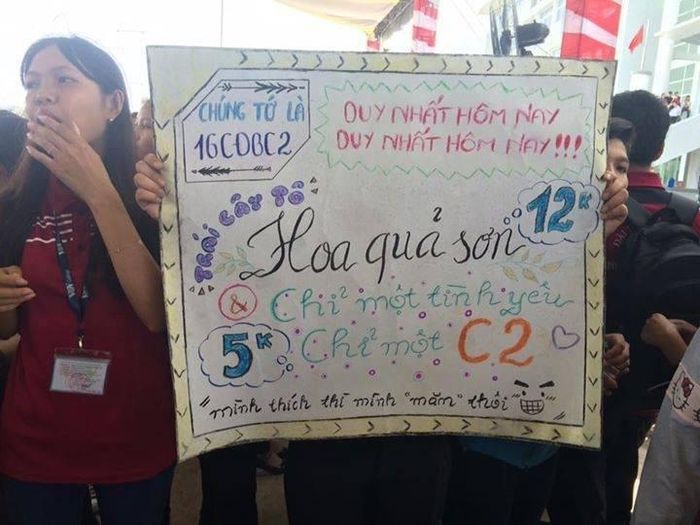 CHÚNG TỚ LÀ
16CĐBC2
DUY NHẤT HÔM NAY
DUY NHẤT HÔM NAY!!!
TRÁI CÂY TÔ
12K
Hoa quả sơn
& Chỉ một tình yêu
5K
Chỉ một C2
"mình thích thì mình "măm" thôi"